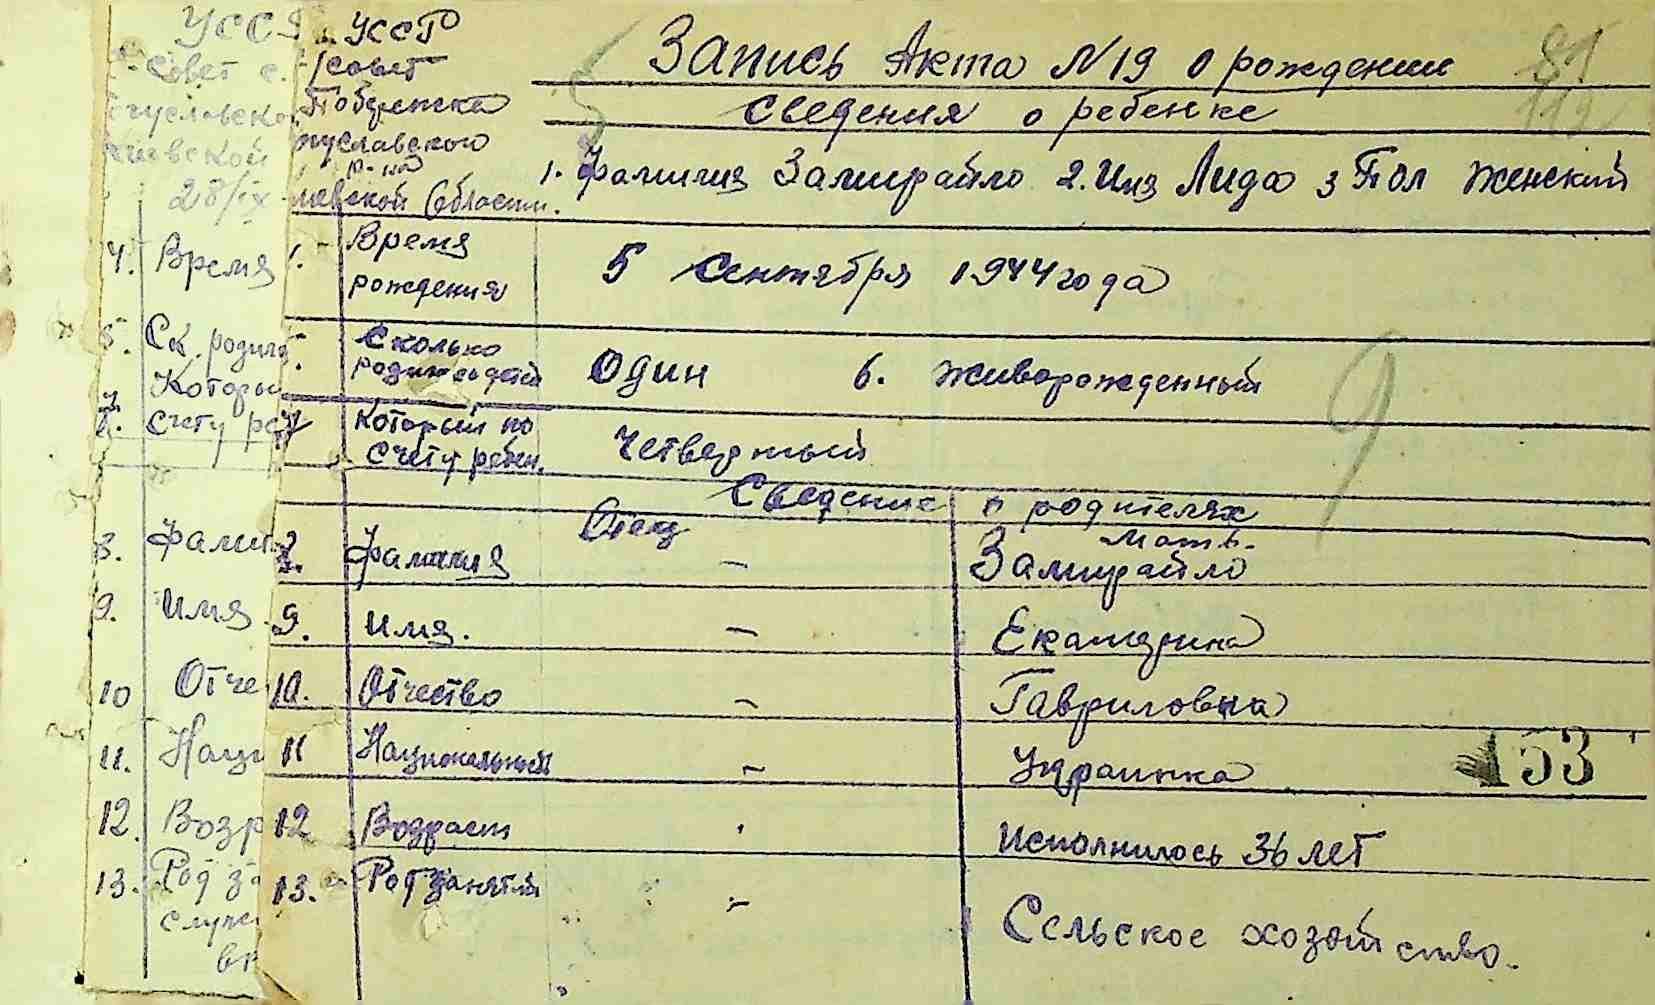 УССР
Совет с.
28/IX
4. Время
5. Ск. родил
7. Которы
счету ре
8. Фами
9. Имя
10 Отче
11. Наци
12. Возр
13. Род за
служ
УССР
совет
Побережка
огуславского
р-на
иевской Области.
Запись Акта N19 о рождении
Сведения о ребенке
1. Фамилия Замирайло 2. Имя Лида 3 Пол Женский
Время рождения 5 Сентября 1944 года
Сколько родилось детей Один 6. живорожденный
7 Который по счету ребен. Четвертый
Сведение о родителях
Отец Мать
8. Фамилия – Замирайло
9. Имя. – Екатерина
10. Отчество – Гавриловна
11 Национальный – Украинка
153
12 Возраст Исполнилось 36 лет
13. Род занятий – Сельское хозяйство.